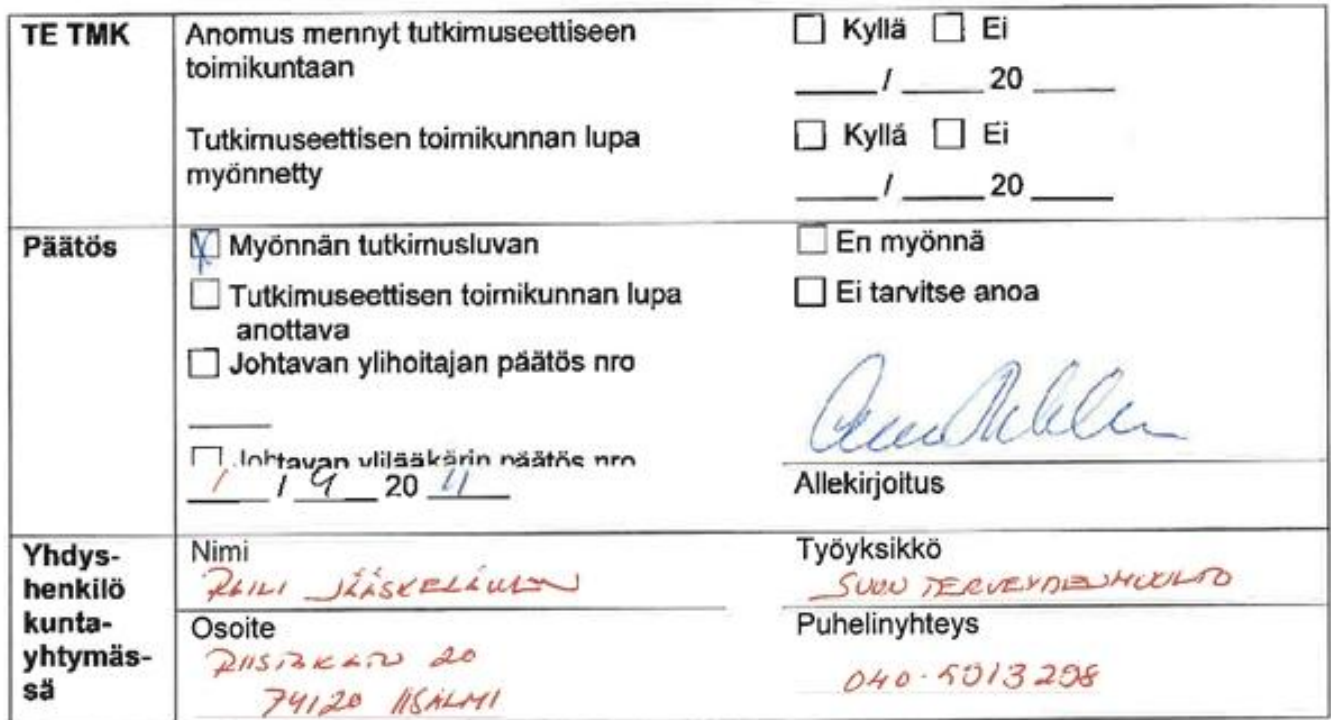 TE TMK
Anomus mennyt tutkimuseettiseen
toimikuntaan
☐ Kyllä ☐ Ei
____/ _____ 20 _____
Tutkimuseettisen toimikunnan lupa
myönnetty
☐ Kyllä ☐ Ei
_____/ ____ 20 ____
Päätös
☒ Myönnän tutkimusluvan
☐ En myönnä
☐ Tutkimuseettisen toimikunnan lupa
anottava
☐ Ei tarvitse anoa
☐ Johtavan ylihoitajan päätös nro
_____
☐ Johtavan ylilääkärin päätös nro
1 / 9 20 11
Allekirjoitus
Yhdys-
henkilö
kunta-
yhtymäs-
sä
Nimi
RAILI JÄÄSKELÄINEN
Työyksikkö
SUUN TERVEYDENHUOLTO
Osoite
RIISTAKATU 20
74120 IISALMI
Puhelinyhteys
040-5013298